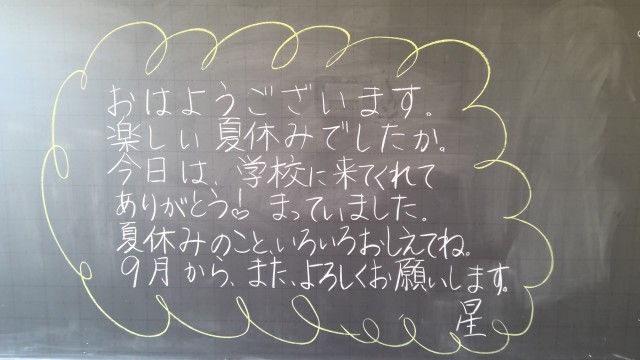 おはようございます。
楽しい夏休みでしたか。
今日は、学校に来てくれて
ありがとう♡ まっていました。
夏休みのこと、いろいろおしえてね。
9月から、また、よろしくお願いします。
星